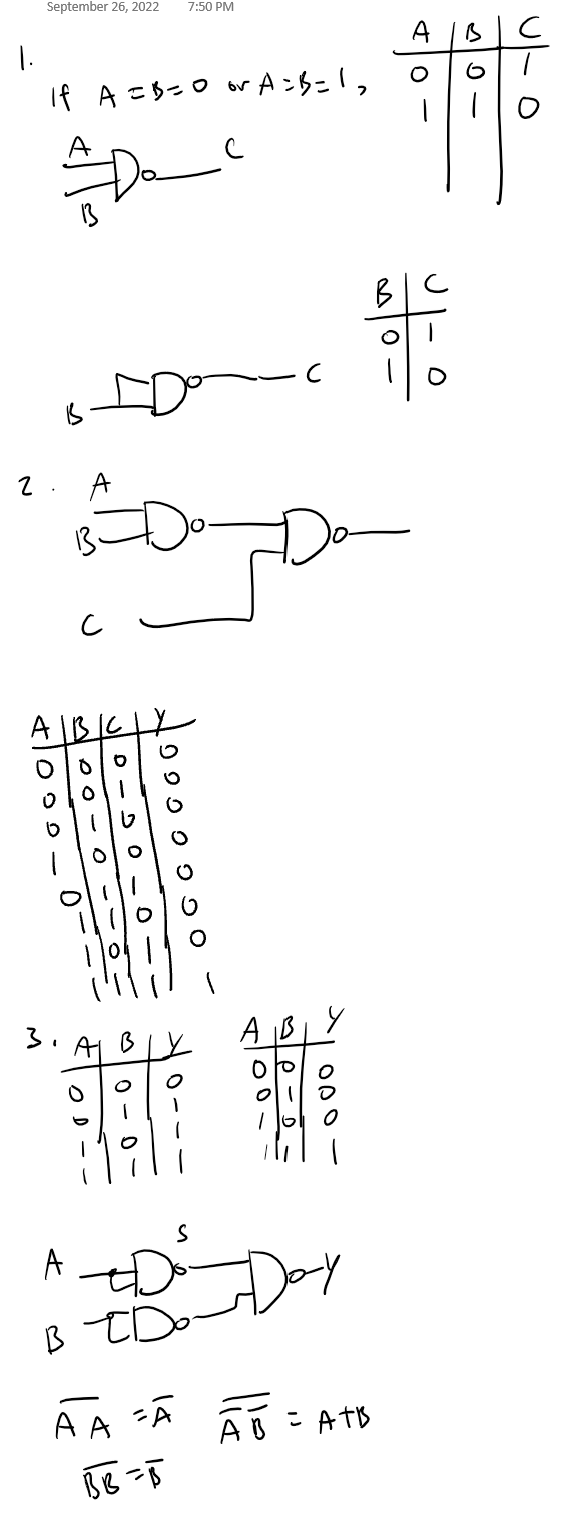 September 26, 2022 7:50 PM
1.
If A = B = 0 or A = B = 1,
A B C
0 0 1
1 1 0
A
C
B
B C
0 1
1 0
C
B
2.
A
B
C
A B C Y
0 0 0 0
0 0 1 0
0 1 0 0
1 0 0 0
0 1 1 0
1 1 0 0
1 0 1 0
1 1 1 1
3.
A B Y
0 0 0
0 1 1
1 0 1
1 1 1
A B Y
0 0 0
0 1 0
1 0 0
1 1 1
S
A
Y
B
A̅ ̅A̅ = A̅
A̿ ̅B̿ = A+B
B̅B̅ = B̅